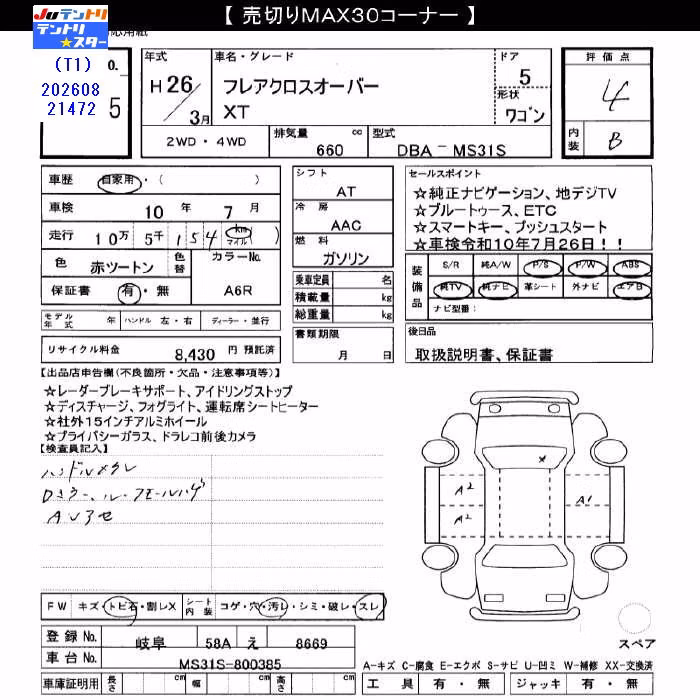 【 売切りMAX30コーナー 】
JUテントリ
テントリ★スター
(T1)
202608
21472
O.
5
年式
H 26/3月
車名・グレード
フレアクロスオーバー
XT
ドア
5
形状
ワゴン
評価点
4
内装
B
2WD・4WD
排気量
660 cc
型式
DBA － MS31S
車歴 自家用・( )
車検 10 年 7 月
走行 10万 5千 1 5 4 km マイル ( )
色 赤ツートン
色替
カラーNo.
A6R
保証書 有・無
モデル年式 年 ハンドル 左・右 ディーラー・並行
リサイクル料金 8,430 円 預託済
シフト
AT
冷房
AAC
燃料
ガソリン
乗車定員 名
積載量 kg
総重量 kg
書類期限
月 日
セールスポイント
☆純正ナビゲーション、地デジTV
☆ブルートゥース、ETC
☆スマートキー、プッシュスタート
☆車検令和10年7月26日！！
装備品
S/R 純A/W P/S P/W ABS
純TV 純ナビ 革シート 外ナビ エアB
ナビ型番：
後日品
取扱説明書、保証書
【出品店申告欄(不良箇所・欠品・注意事項等)】
☆レーダーブレーキサポート、アイドリングストップ
☆ディスチャージ、フォグライト、運転席シートヒーター
☆社外15インチアルミホイール
☆プライバシーガラス、ドラレコ前後カメラ
【検査員記入】
ハンドルメクレ
A2
A2
A1
FW キズ・トビ石・割レX
シート内装 コゲ・穴・汚レ・シミ・破レ・スレ
登録No. 岐阜 58A え 8669
車台No. MS31S-800385
車庫証明用 長さ cm 幅 cm 高さ cm
スペア
A-キズ C-腐食 E-エクボ S-サビ U-凹ミ W-補修 XX-交換済
工具 有・無 ジャッキ 有・無